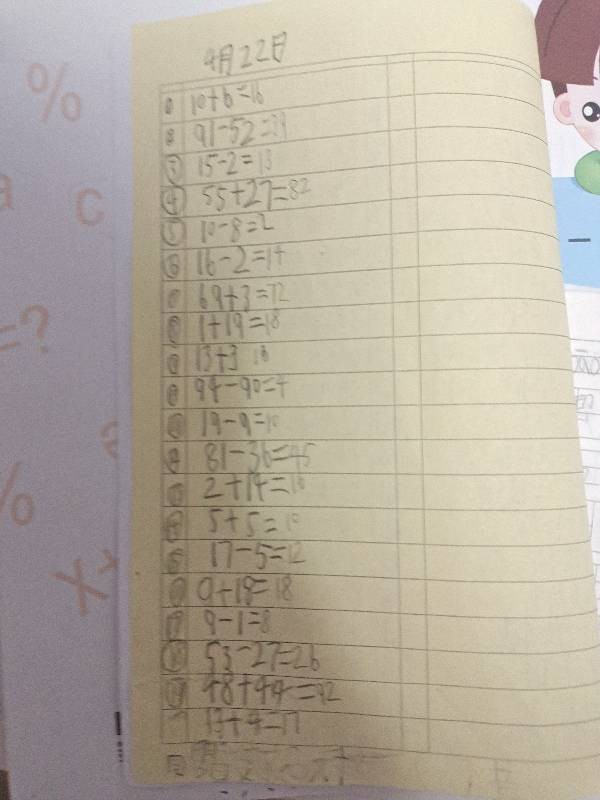 4月22日
① 10+6=16
② 91-52=39
③ 15-2=13
④ 55+27=82
⑤ 10-8=2
⑥ 16-2=14
⑦ 69+3=72
⑧ 1+19=18
⑨ 13+3 16
⑩ 94-90=4
⑪ 19-9=10
⑫ 81-36=45
⑬ 2+14=16
⑭ 5+5=10
⑮ 17-5=12
⑯ 0+18=18
⑰ 9-1=8
⑱ 53-27=26
⑲ 48+44=92
13+4=17
%
c
=?
%